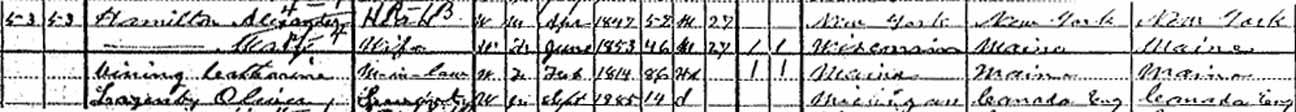 53 53 Hamilton Alexander Head W M Apr 1847 52 M 27 New York New York New York
Wife W F June 1853 46 M 27 1 1 Wisconsin Maine Maine
Vining Catharine M-in-law W F Feb 1814 86 Wd 1 1 Maine Maine Maine
Oliver W M Sept 1885 14 S Michigan Canada Eng Canada Eng